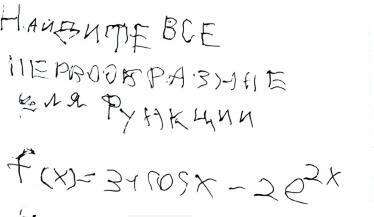 Найдите все
первообразные
для функции
f(x)=3+cosx-2e^2x